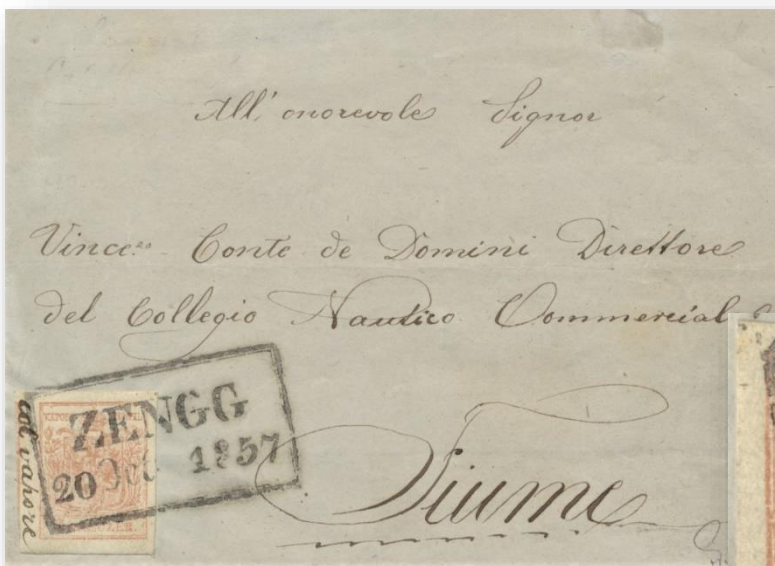 All' onorevole Signor
Vince:zo Conte de Domini Direttore
del Collegio Nautico Commercial
ZENGG
20 Oct 1857
col vapore
Fiume